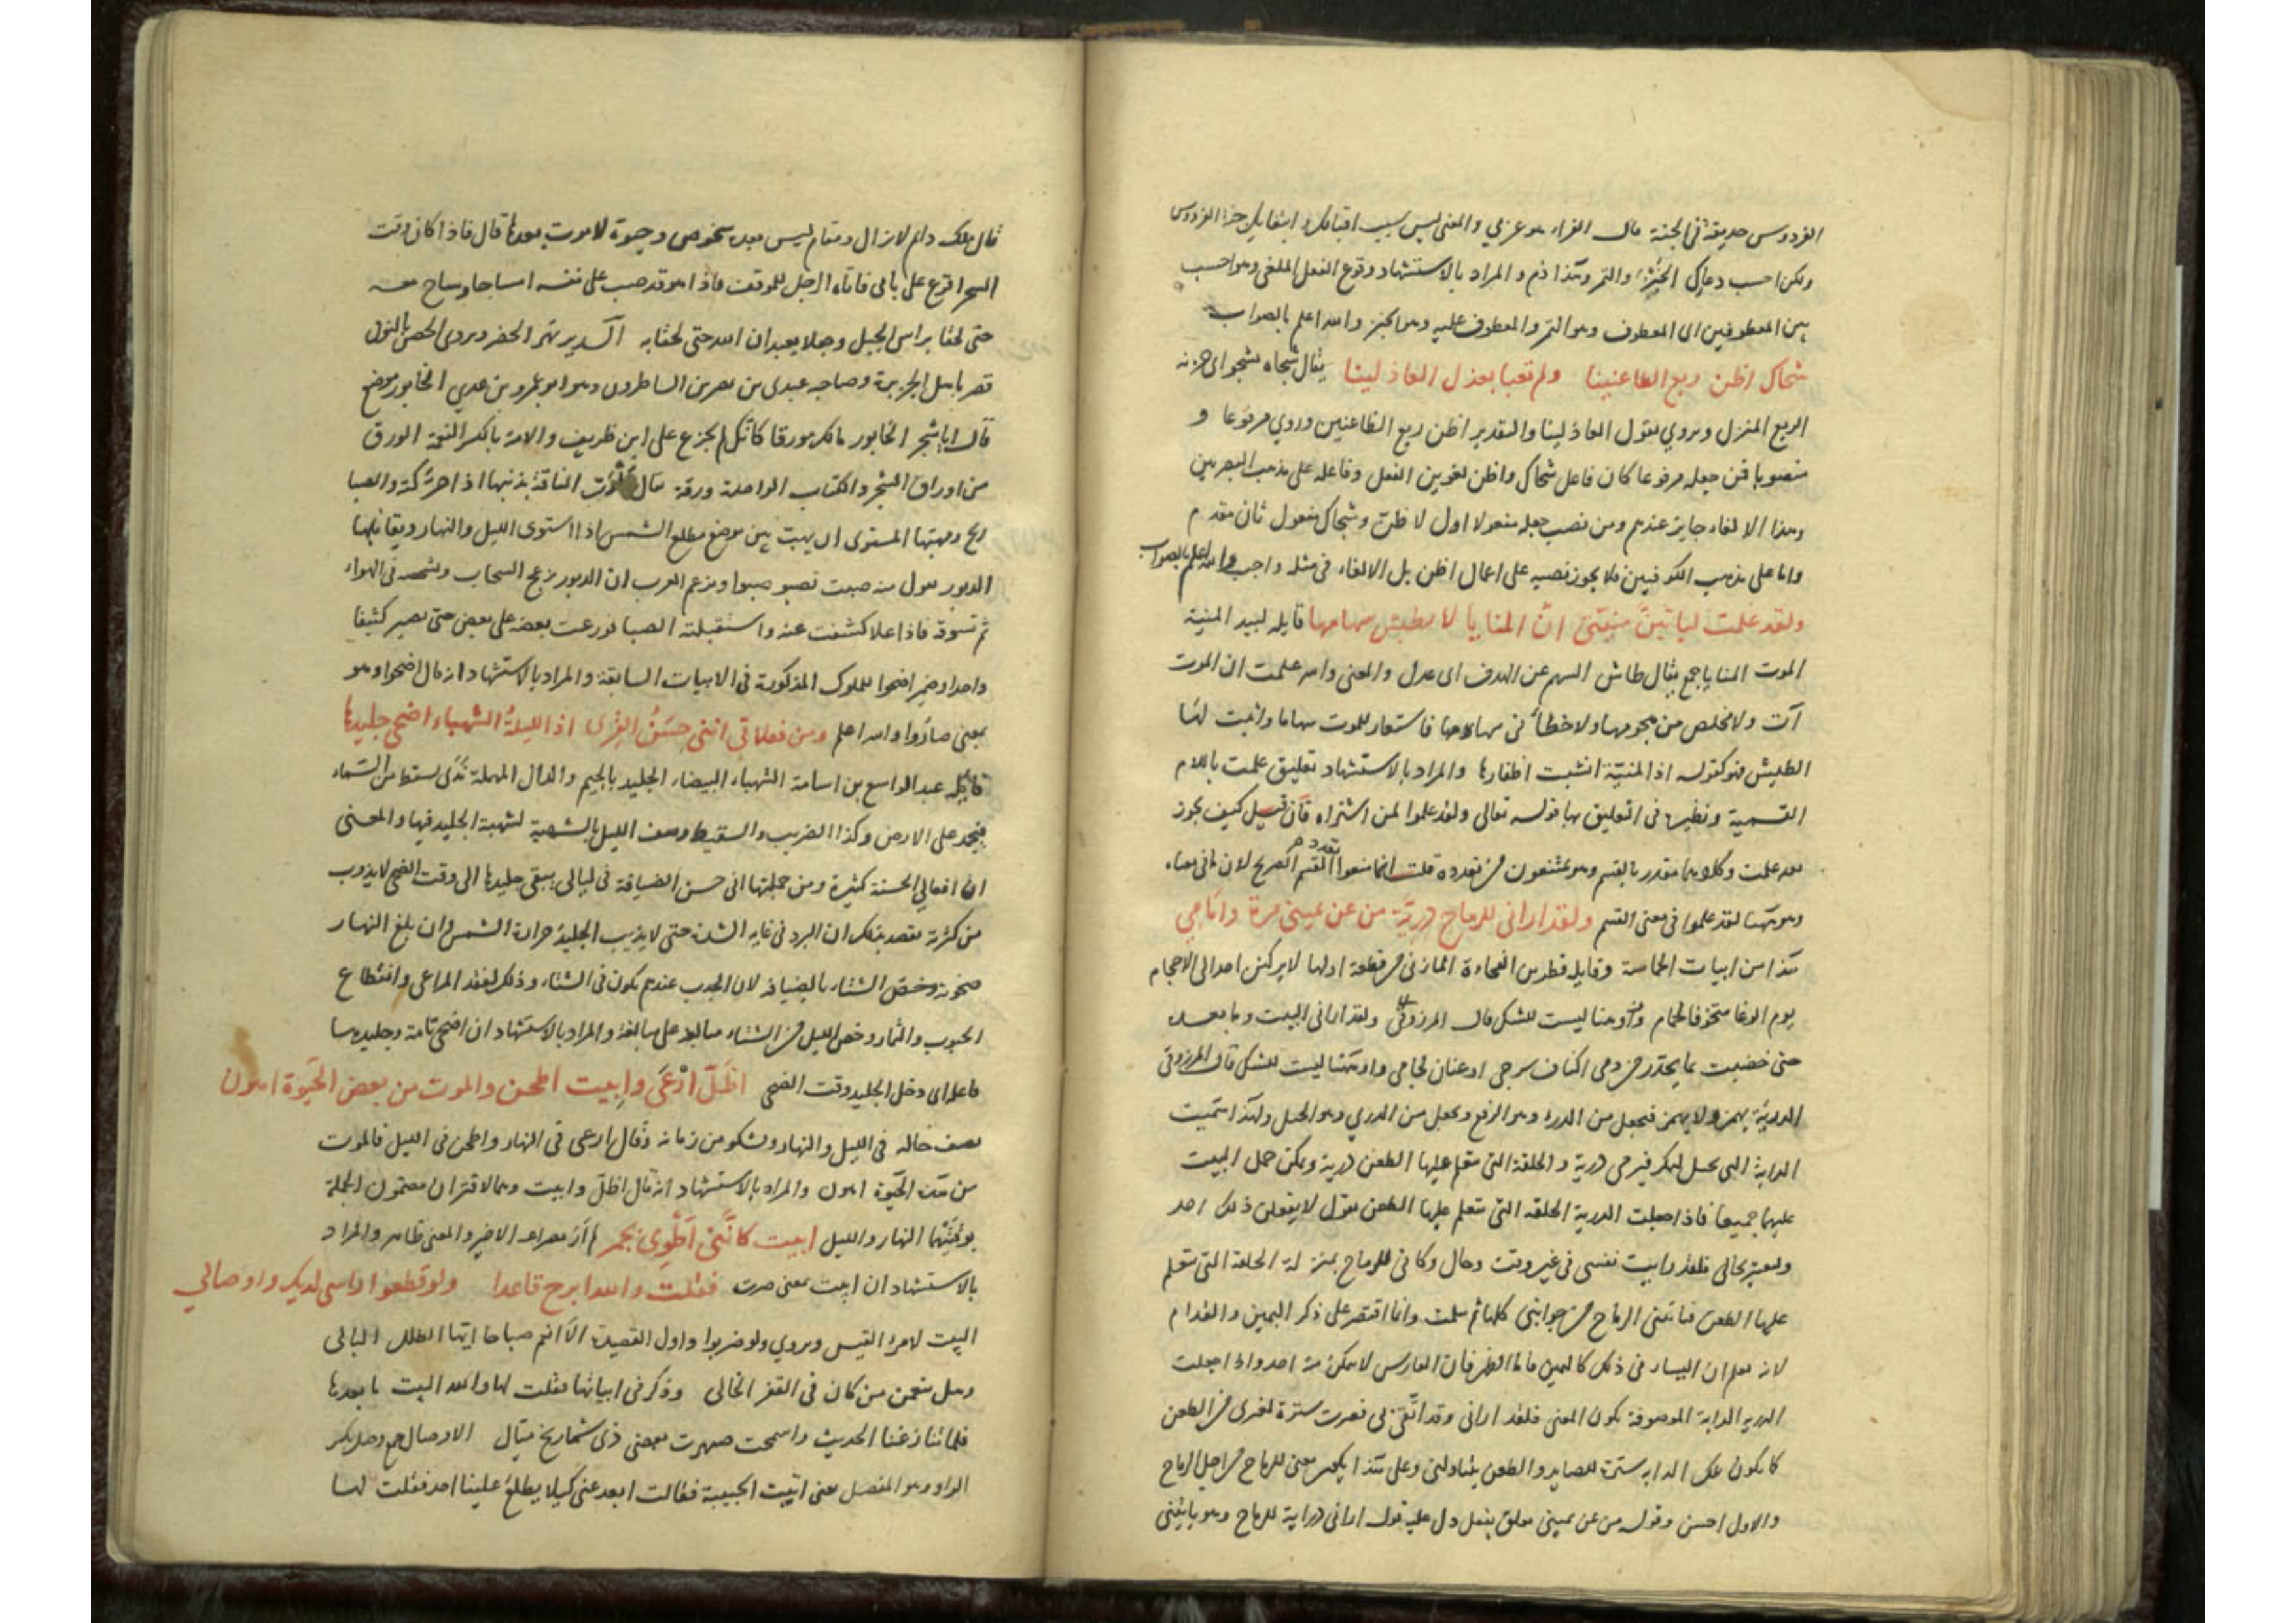 الفردوس حديقة في الجنة قال الفراء هو عربي والمعنى ليس سبب اقبالك وابتغائك جنة الفردوس
ولكن احسب دعاك الخبز والتمر وهذا ذم والمراد بالاستشهاد وقوع الفعل الملغى وهو احسب
بين المعطوفين اى المعطوف وهو التمر والمعطوف عليه وهو الخبز والله اعلم بالصواب
شجاك اظن ربع الظاعنينا ولم تعبا بعذل العاذلينا يقال شجاه يشجو اى حزنه
الربع المنزل ويروي بقول العاذلينا والتقدير اظن ربع الظاعنين وروي مرفوعا و
منصوبا فمن جعله مرفوعا كان فاعل شجاك واظن لغو بين الفعل وفاعله على مذهب البصريين
وهذا الالغاء جايز عندهم ومن نصب جعله مفعولا اول لاظن وشجاك مفعول ثان مقدم
واما على مذهب الكوفيين فلا يجوز نصبه على اعمال اظن بل الالغاء في مثله واجب والله اعلم بالصواب
ولقد علمت لياتين منيتى ان المنايا لا يطيش سهامها قايله لبيد المنية
الموت المنايا جمع يقال طاش السهم عن الهدف اى عدل والمعنى والله علمت ان الموت
آت ولا مخلص من هجومها ولا خطأ فى سهامها فاستعار للموت سهاما واثبت لها
الطيش فهو كقوله اذا المنية انشبت اظفارها والمراد بالاستشهاد تعليق علمت باللام
القسمية ونظيره فى التعليق بها قوله تعالى ولقد علموا لمن اشتراه فان قيل كيف يجوز
بعد علمت وكلاهما مقدر بالقسم وهم يمتنعون من تعدده قلت انما منعوا تعدد القسم الصريح لان ما فى معناه
وهو ههنا لقد علموا فى معنى القسم ولقد ارانى للرماح دريّة من عن يمينى مرة وامامي
هذا من ابيات الحماسة وقايله قطرى بن الفجاءة المازنى من قطعة اولها لا يركنن احد الى الاحجام
يوم الوغا متخوفا لحمام واو هنا ليست للشك قال المرزوقى ولقد ارانى البيت وما بعده
حتى خضبت بما تحدر من دمى اكناف سرجى او عنان لجامى واو ههنا ليست للشك قال المرزوقى
الدريئة يهمز ولا يهمز فيجعل من الدرء وهو الدفع ويجعل من الدري وهو الختل ولهذا سميت
الدابة التى يختل فيرمى درية والحلقة التى يتعلم عليها الطعن درية ويمكن حمل البيت
عليهما جميعا فاذا جعلت الدرية الحلقة التى يتعلم عليها الطعن يقول لا يفعلن ذلك احد
وليعتبر بحالى فلقد رايت نفسى فى غير وقت وحال وكانى للرماح بمنزلة الحلقة التى يتعلم
عليها الطعن فتاتينى الرماح من جوانبى كلها ثم سلمت وانما اقتصر على ذكر اليمين والقدام
لانه يعلم ان اليسار فى ذلك كاليمين فاما الظهر فان الفارس لا يمكن منه احد واذا جعلت
الدرية الدابة الموصوفة يكون المعنى فلقد ارانى وقد اتقى بى فصرت سترة لغيرى من الطعن
كما يكون تلك الدابة سترة للصايد والطعن يتناولنى وعلى هذا يكون معنى للرماح من اجل الرماح
والاول احسن وقوله من عن يمينى معلق بفعل دل عليه قوله ارانى دراية للرماح وهو ياتينى
قال ملك دائم لا زال ومقام ليس بعده شخوص وحيوة لا موت بعدها قال فاذا كان وقت
السحر اقرع على بابى فاتاه الرجل للموقت فاذا هو قد صب على نفسه امساجا وساح معه
حتى لحقا براس الجبل وجعلا يعبدان الله حتى لحقا به السدير نهر الحضر ويروى الحصن بالنون
قصر باهل الجزيرة وصاحبه عبدى بن نصر بن الساطرون وهو ابو عمرو بن عدي الخابور موضع
قال ايا شجر الخابور مالك مورقا كانك لم تجزع على ابن ظريف والامة بالكسر النعمة الورق
من اوراق الشجر والكتاب الواحدة ورقة يقال الوت الناقة بذنبها اذا حركته والصبا
ريح ومهبها المستوى ان يهب بين موضع مطلع الشمس اذا استوى الليل والنهار ويقابلها
الدبور يقول منه صبت تصبو صبوا وتزعم العرب ان الدبور تزعج السحاب وتشخصه فى الهواء
ثم تسوقه فاذا علا كشفت عنه واستقبلته الصبا فوزعت بعضه على بعض حتى يصير كثيفا
واحدا وضمير اضحوا للملوك المذكورة فى الابيات السابقة والمراد بالاستشهاد انه قال اضحوا وهو
بمعنى صاروا والله اعلم ومن فعلاتى اننى حسن القرى اذا الليلة الشهباء اضحى جليدها
قايله عبد الواسع بن اسامة الشهباء البيضاء الجليد بالجيم والدال المهملة ندى يسقط من السماء
فيجمد على الارض وكذا الضريب والسقيط وصف الليل بالشهبة لشهبة الجليد فيها والمعنى
ان افعالي الحسنة كثيرة ومن جملتها انى حسن الضيافة فى ليالى يبقى جليدها الى وقت الضحى لا يذوب
من كثرته يقصد بذلك ان البرد فى غاية الشدة حتى لا يذيب الجليد حرارة الشمس وان بلغ النهار
ضحوته وخص الشتاء بالضيافة لان الجدب عندهم يكون فى الشتاء وذلك لفقد المراعى وانقطاع
الحبوب والثمار وخص الليل من الشتاء مبالغة على مبالغة والمراد بالاستشهاد ان اضحى تامة وجليدها
فاعله اى دخل الجليد وقت الضحى اظل ارعى وابيت اطحن والموت من بعض الحيوة اهون
يصف حاله فى الليل والنهار ويشكو من زمانه وقال ارعى فى النهار واطحن فى الليل فالموت
من هذه الحيوة اهون والمراد بالاستشهاد انه قال اظل وابيت وهما لاقتران مضمون الجملة
بوقتيهما النهار والليل ابيت كاننى اطوى بجمر لم ار مصراعه الاخير والمعنى ظاهر والمراد
بالاستشهاد ان ابيت بمعنى صرت فقلت والله ابرح قاعدا ولو قطعوا راسى لديك واوصالي
البيت لامرء القيس ويروي ولو ضربوا واول القصيدة الا انعم صباحا ايها الطلل البالى
وهل ينعمن من كان فى القفر الخالى وذكر فى ابياتها فقلت لها والله البيت ما بعدها
فلما تنازعنا الحديث واسمحت هصرت بغصن ذى شماريخ ميال الاوصال جمع وصل بكسر
الواو وهو المفصل يعنى اتيت الحبيبة فقالت ابعد عنى كيلا يطلع علينا احد فقلت لها